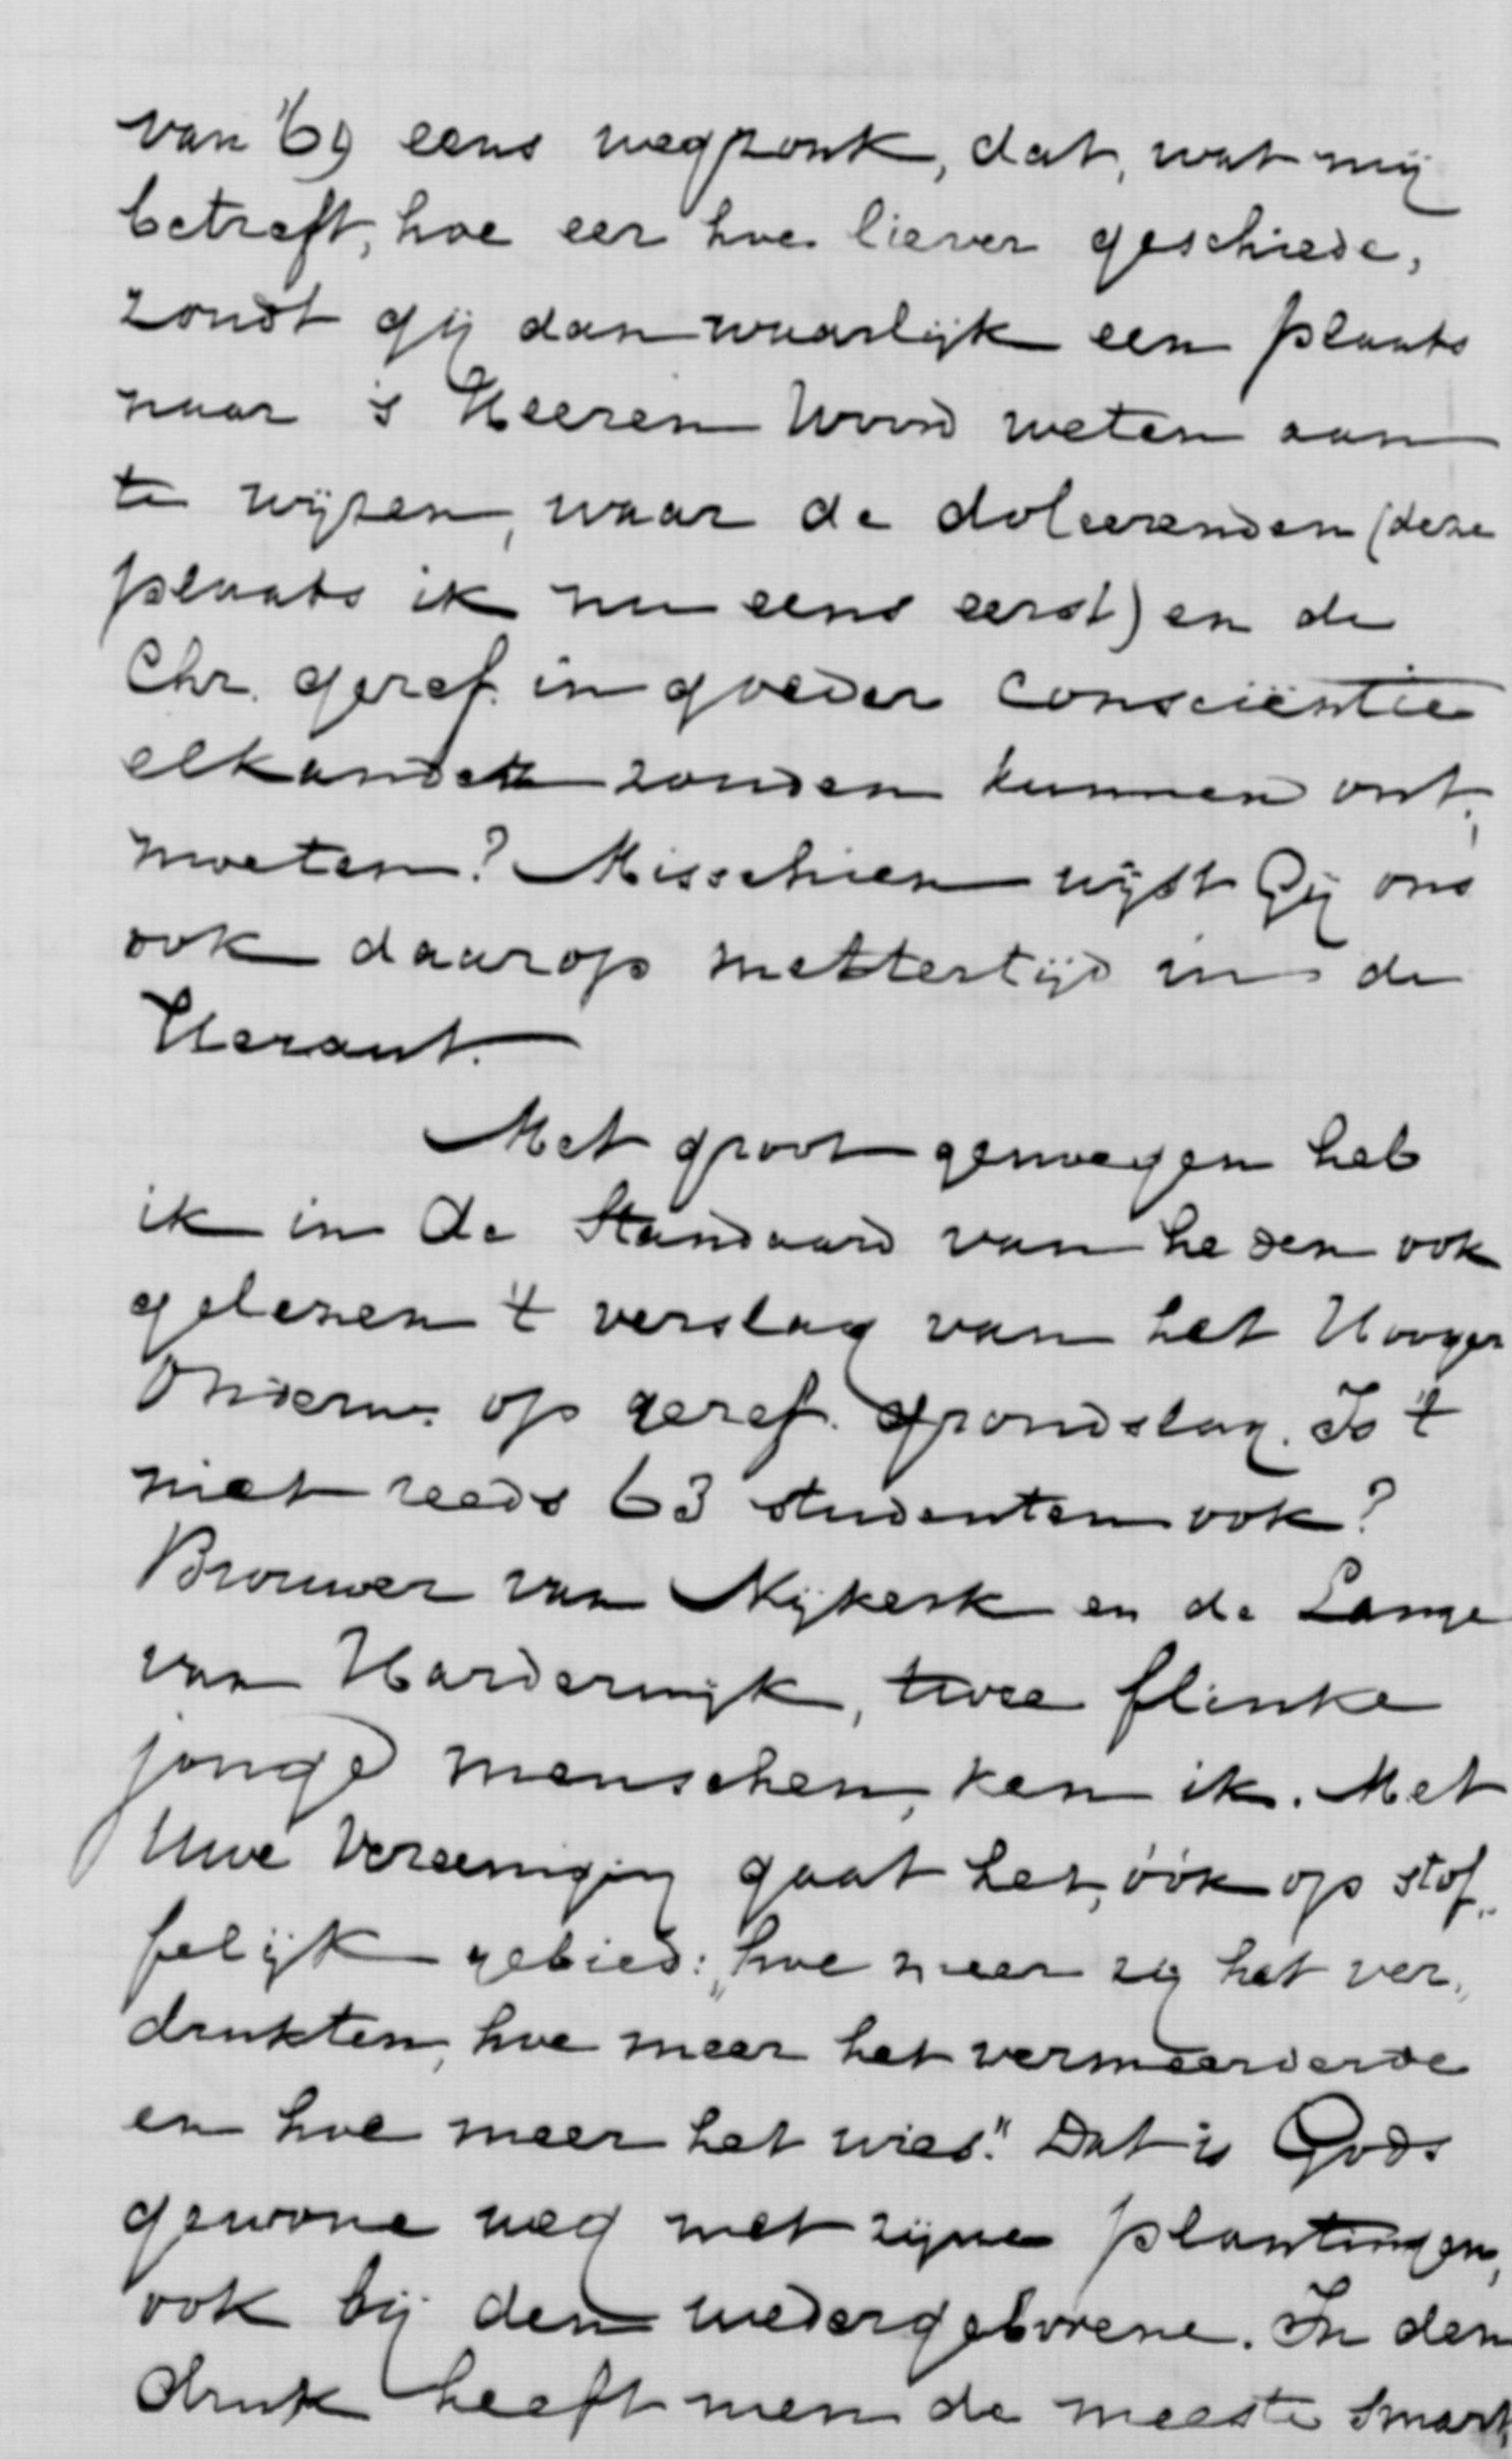 van '69 eens wegzonk, dat, wat mij
betreft, hoe eer hoe liever geschiede,
zoudt gij dan waarlijk een plaats
naar 's Heeren Woord weten aan
te wijzen, waar de doleerenden (deze
plaats ik nu eens eerst) en de
Chr. geref. in goeder consciëntie
elkander zouden kunnen ont-
moeten? Misschien wijst Gij ons
ook daarop mettertijd in de
Heraut.
Met groot genoegen heb
ik in de Standaard van heden ook
gelezen 't verslag van het Hooger
Onderw. op geref. grondslag. Is 't
niet reeds 63 studenten ook?
Brouwer van Nijkerk en de Lange
van Harderwijk, twee flinke
jonge menschen, ken ik. Met
Uwe Vereeniging gaat het, óók op stof-
felijk gebied: "hoe meer zij het ver-
drukten, hoe meer het vermeerderde
en hoe meer het wies." Dat is Gods
gewone weg met zijne plantingen,
ook bij den wedergeborene. In den
druk heeft men de meeste smart,